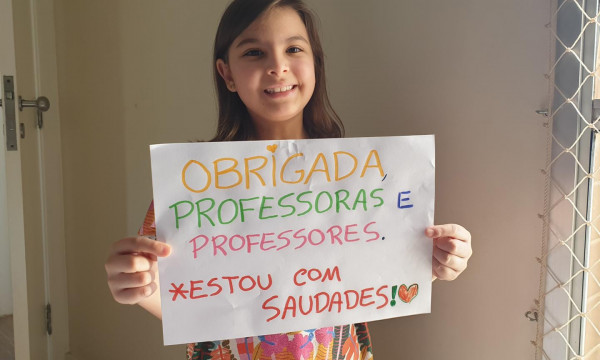 OBRIGADA,
PROFESSORAS E
PROFESSORES.
*ESTOU COM
SAUDADES!